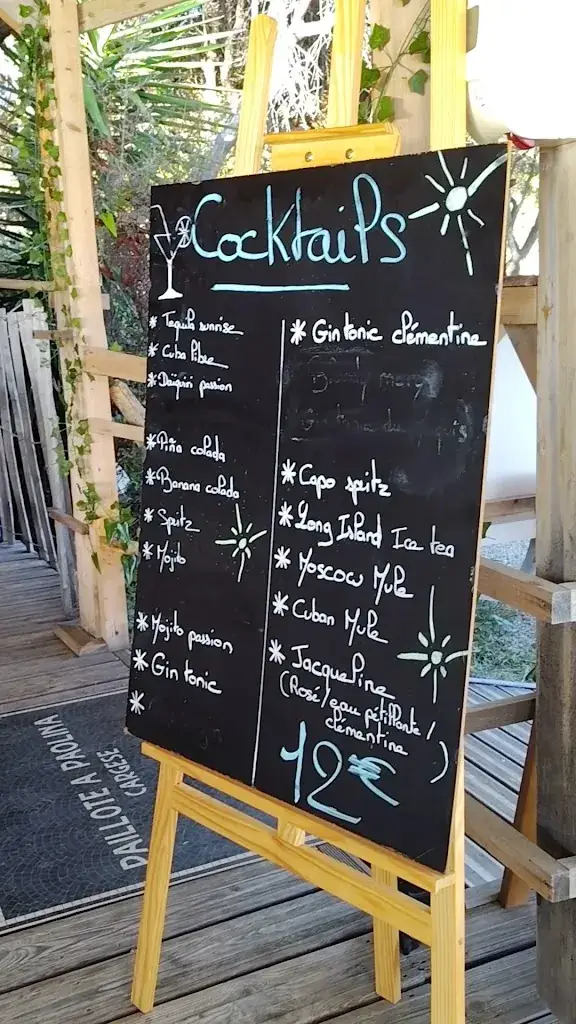 Cocktails
* Tequila sunrise
* Cuba libre
* Daiquiri passion
* Piña colada
* Banana colada
* Spritz
* Mojito
* Mojito passion
* Gin tonic
*
* Gin tonic clémentine
* Capo spritz
* Long Island Ice tea
* Moscow Mule
* Cuban Mule
* Jacqueline
(Rosé/eau pétillante/
clémentine
)
12€
PAILLOTE A PAOLINA
CARGESE